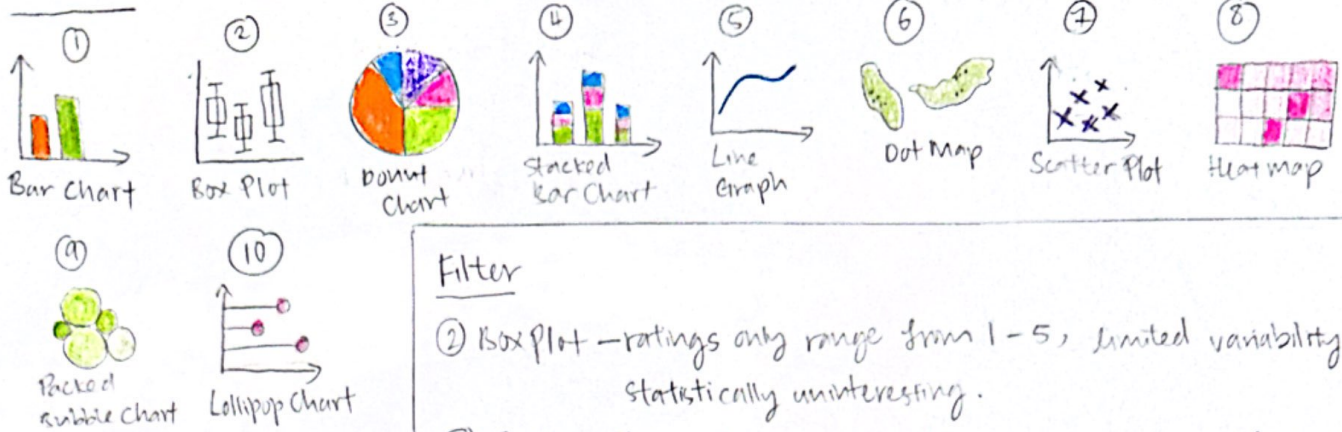 ①
②
③
④
⑤
⑥
⑦
⑧
Bar Chart
Box Plot
Donut
Chart
Stacked
Bar Chart
Line
Graph
Dot Map
Scatter Plot
Heatmap
⑨
⑩
Packed
Bubble Chart
Lollipop Chart
Filter
② Box Plot – ratings only range from 1-5, limited variability
statistically uninteresting.